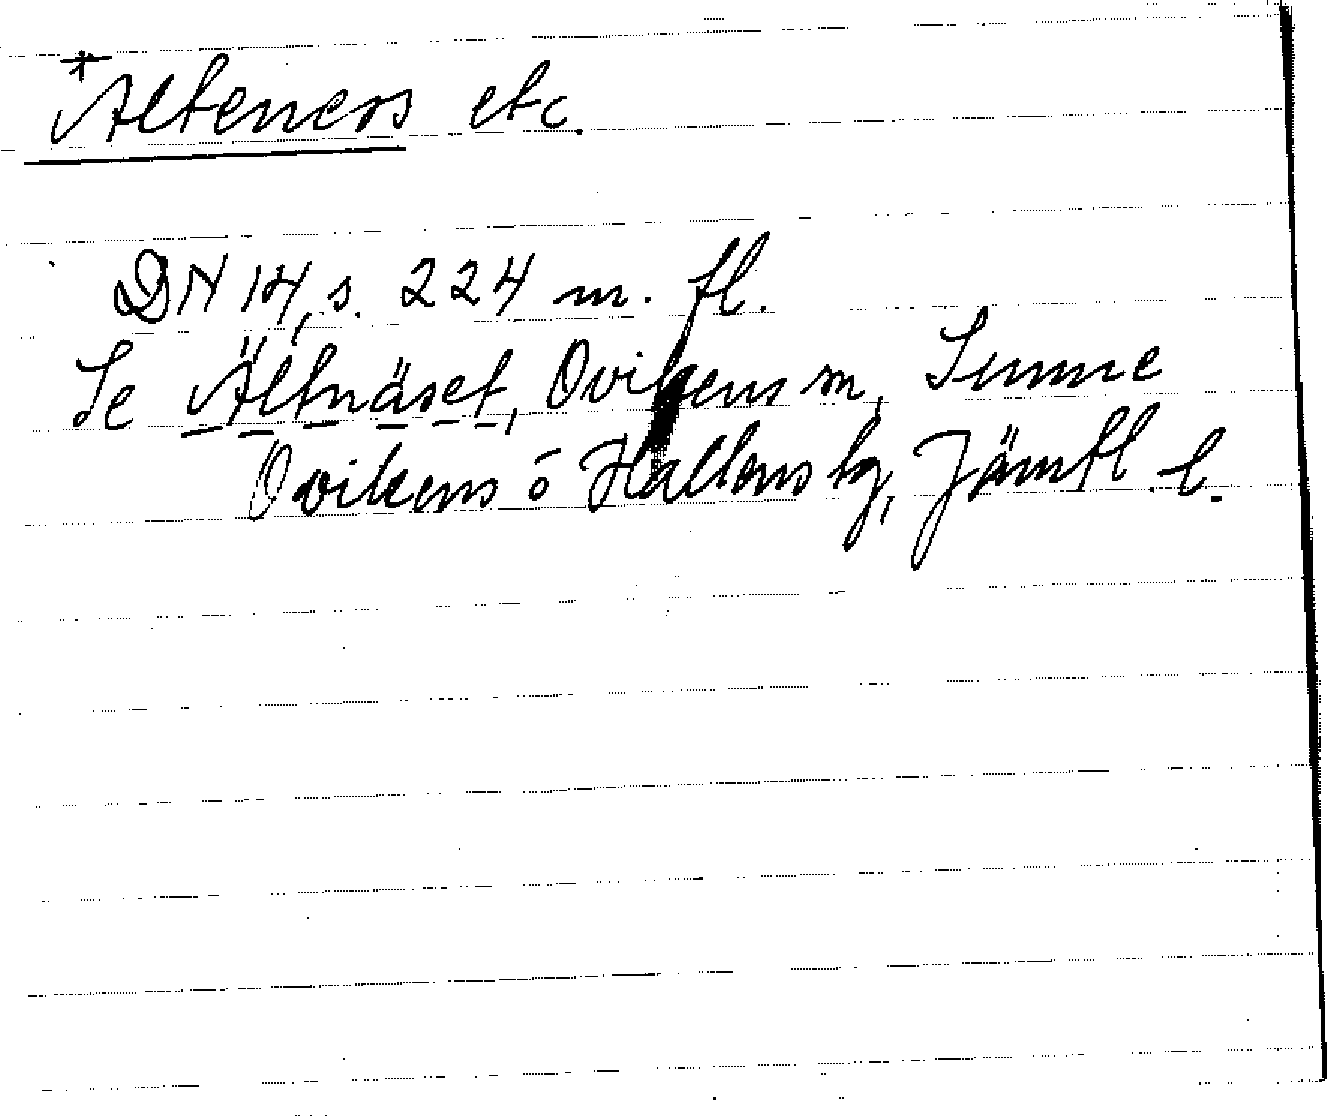 *Alteness etc.
DN 14, s. 224 m. fl.
Se Ältnäset, Ovikens sn, Sunne
Ovikens o Hallens tg, Jämtl l.